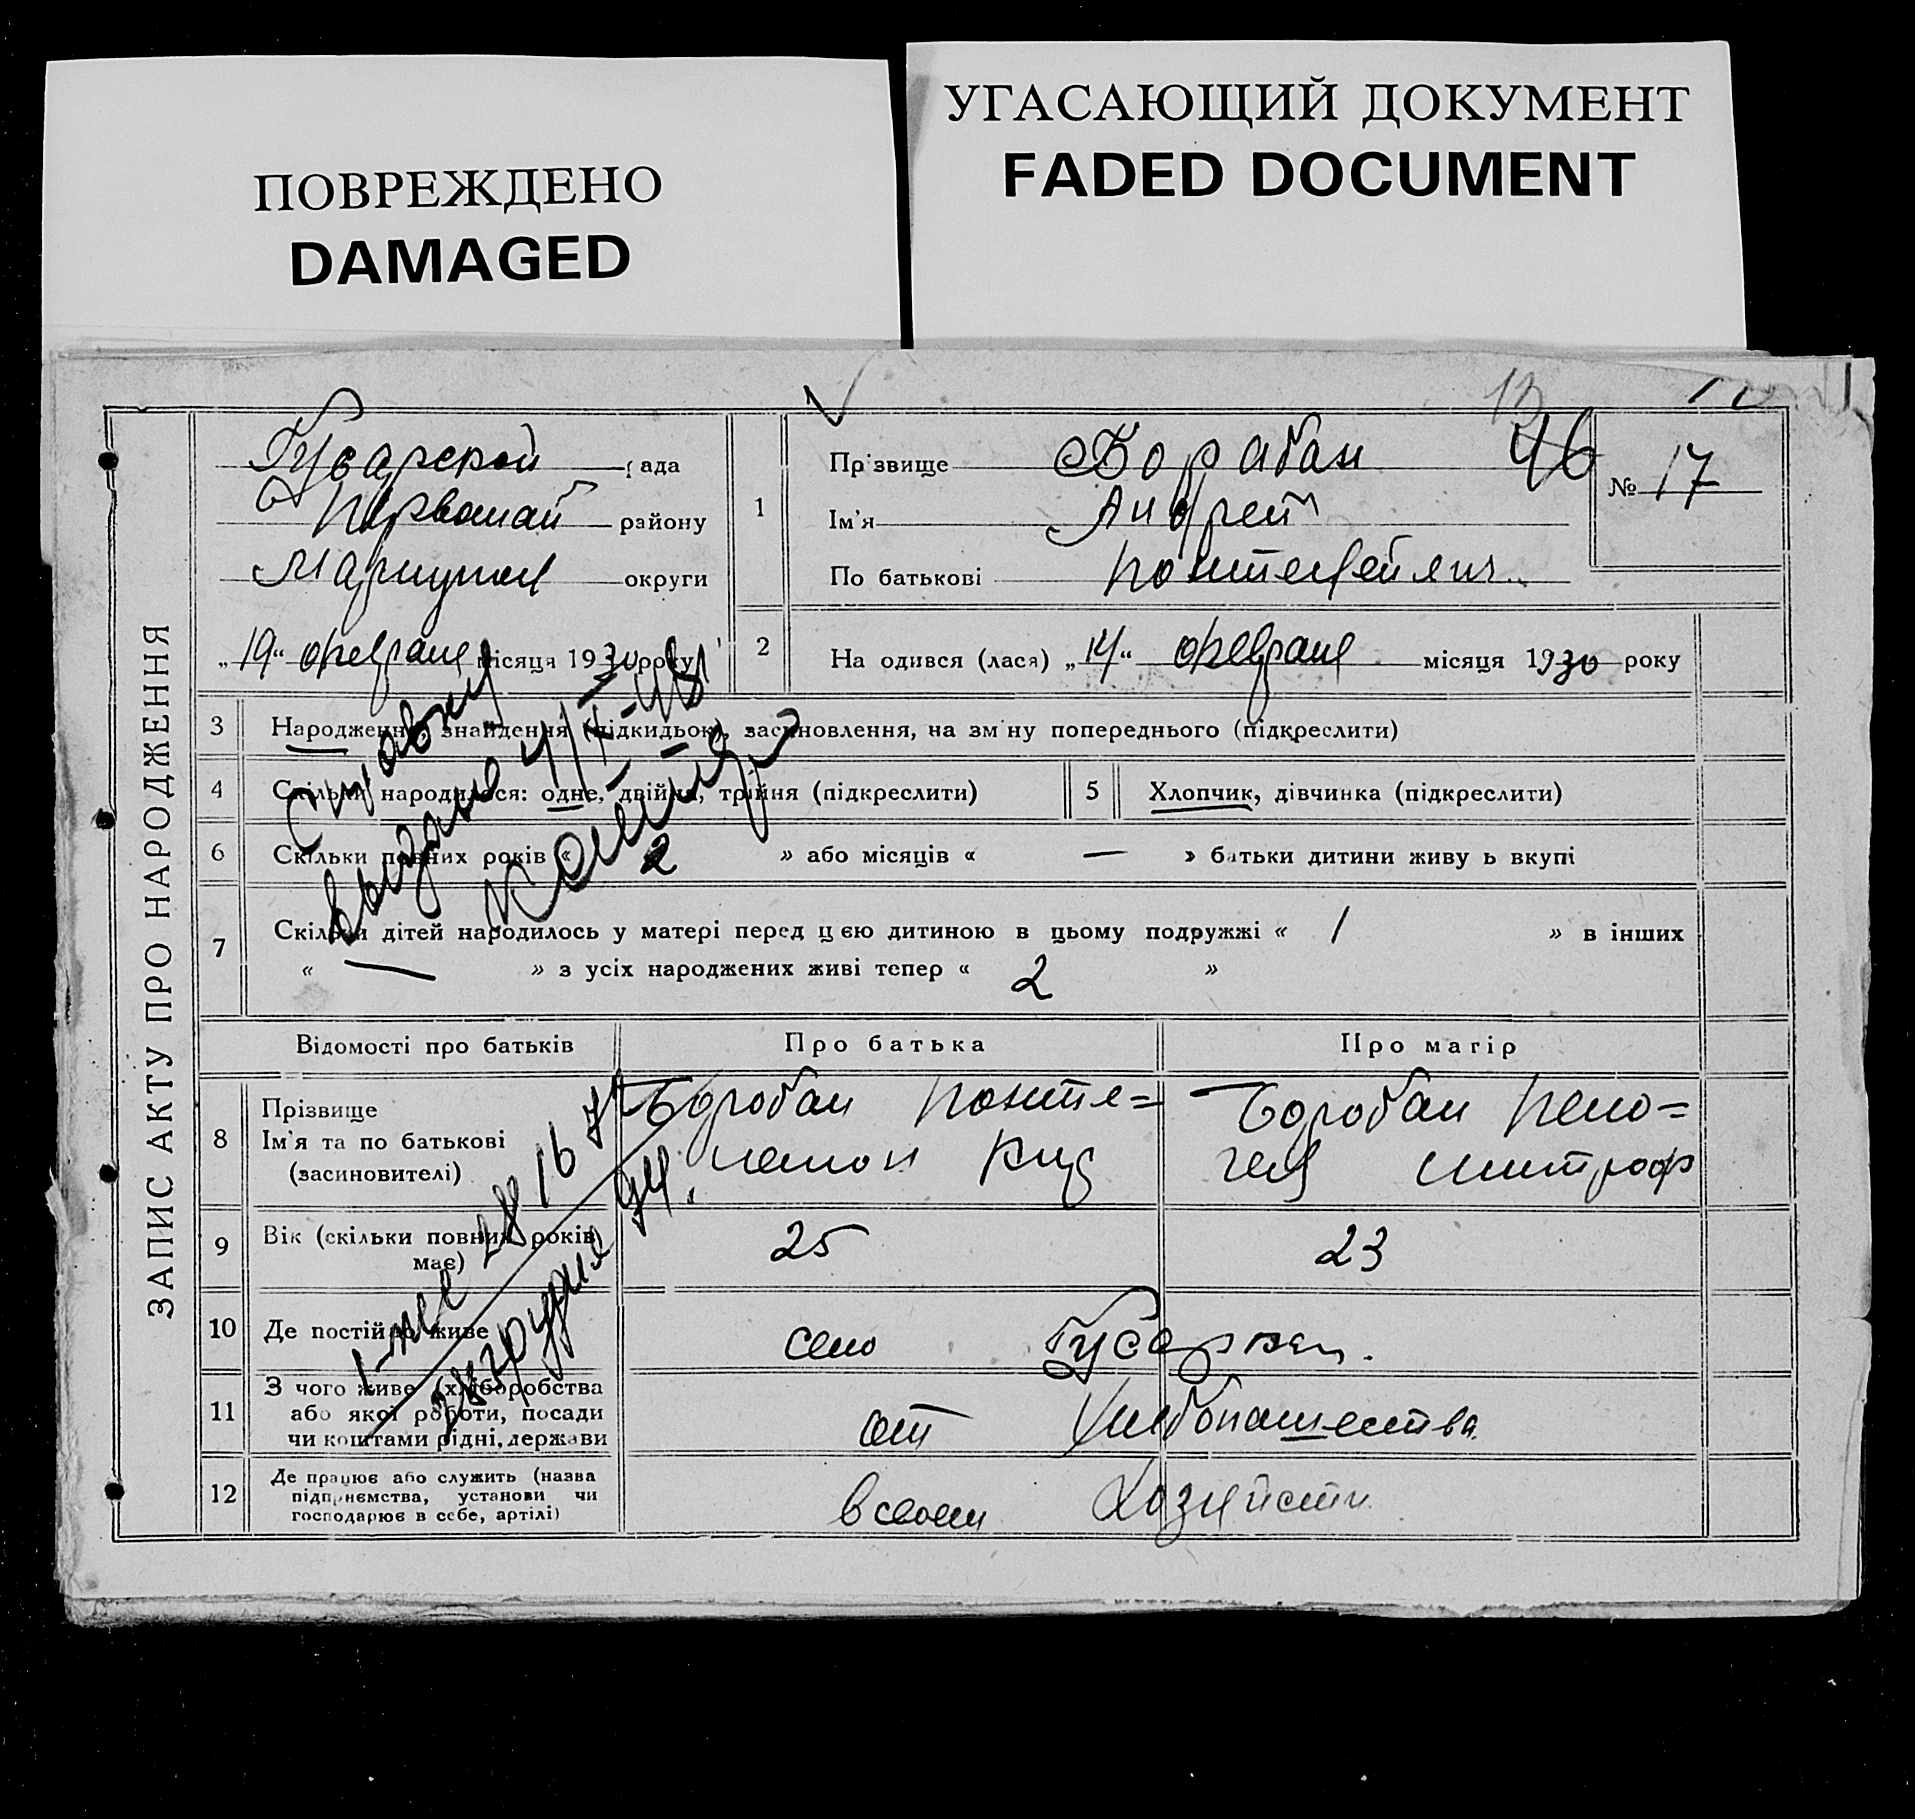 ПОВРЕЖДЕНО
DAMAGED
УГАСАЮЩИЙ ДОКУМЕНТ
FADED DOCUMENT
ЗАПИС АКТУ ПРО НАРОДЖЕННЯ
Гусарской рада
Первомай району
Мариупол округи
„19“ февраля місяця 1930 року
1
Прізвище Борабан
46
№ 17
Ім'я Андрей
По батькові
2
На одився (лася) „14“ февраля місяця 1930 року
3 Народження, знайдення (підкидьок), засиновлення, на зміну попереднього (підкреслити)
4 Скільки народилося: одне, двійня, трійня (підкреслити)
5 Хлопчик, дівчинка (підкреслити)
6 Скільки повних років « 2 » або місяців « — » батьки дитини живуть вкупі
7 Скільки дітей народилось у матері перед цією дитиною в цьому подружжі « 1 » в інших
« — » з усіх народжених живі тепер « 2 »
Справку
выдано 4/IX-48
Відомості про батьків
Про батька
Про матір
8 Прізвище
Ім'я та по батькові
(засиновителі)
Боробан Понте=
Боробан Пела=
гея Митроф
9 Вік (скільки повних років має)
25
23
10 Де постійно живе
село Гусарка.
11 З чого живе (хліборобства
або якої роботи, посади
чи коштами рідні, держави
от хлебопашества
12 Де працює або служить (назва
підприємства, установи чи
господарює в себе, артілі)
в своем хозяйств